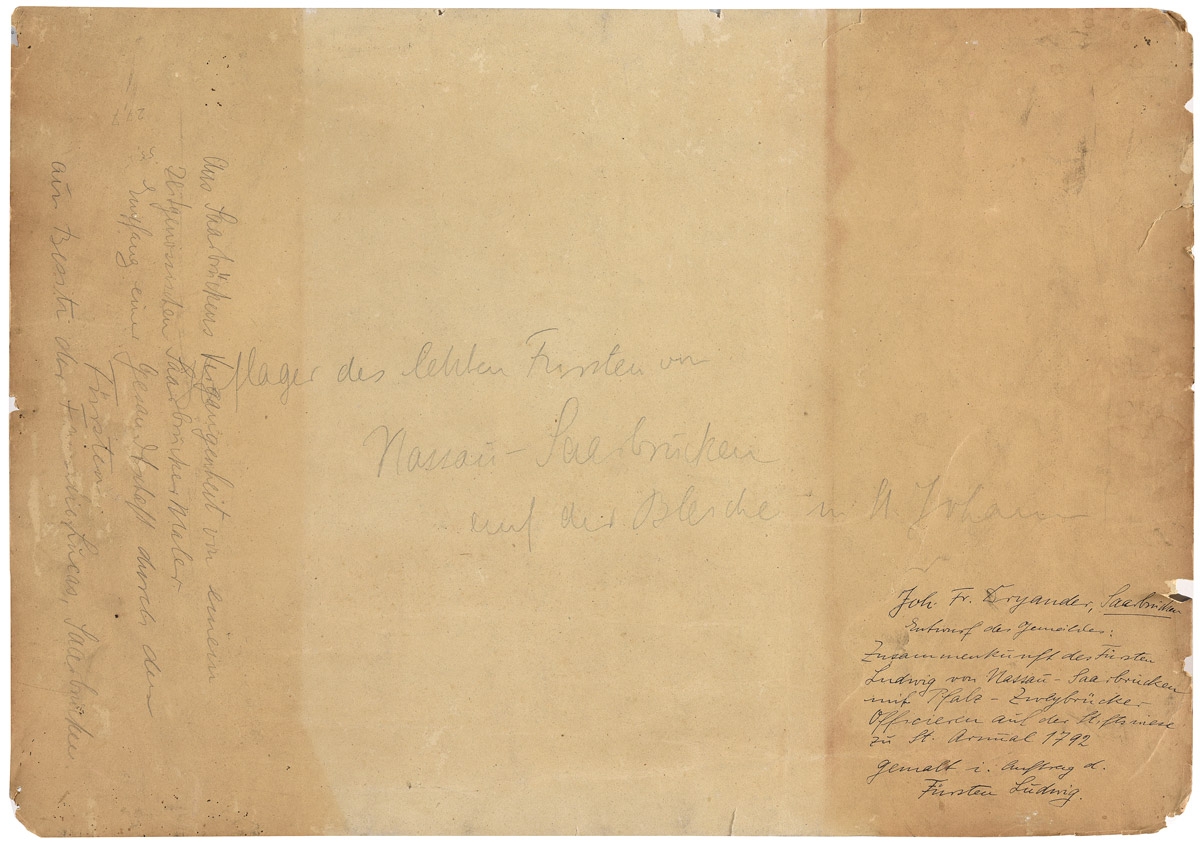 277
Aus Saarbrückens Vergangenheit von einem
Zeitgenossischen Saarbrücker Maler
Empfang einer Gesandtschaft durch den
Fürsten
aus Besitz der Familie Lucas, Saarbrücken
des letzten Fürsten von
Nassau-Saarbrücken
auf der Bleiche in St. Johann
Joh. Fr. Dryander, Saarbrücken
Entwurf des Gemäldes:
Zusammenkunft des Fürsten
Ludwig von Nassau-Saarbrücken
mit Pfalz-Zweybrücker
Officieren auf der Stiftswiese
zu St. Arnual 1792
gemalt i. Auftrag d.
Fürsten Ludwig.